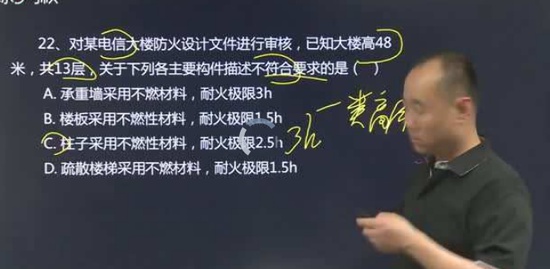 22、对某电信大楼防火设计文件进行审核，已知大楼高48
米，共13层，关于下列各主要构件描述不符合要求的是（ ）
A. 承重墙采用不燃材料，耐火极限3h
B. 楼板采用不燃材料，耐火极限1.5h
C. 柱子采用不燃性材料，耐火极限2.5h
D. 疏散楼梯采用不燃材料，耐火极限1.5h
3h 一类高